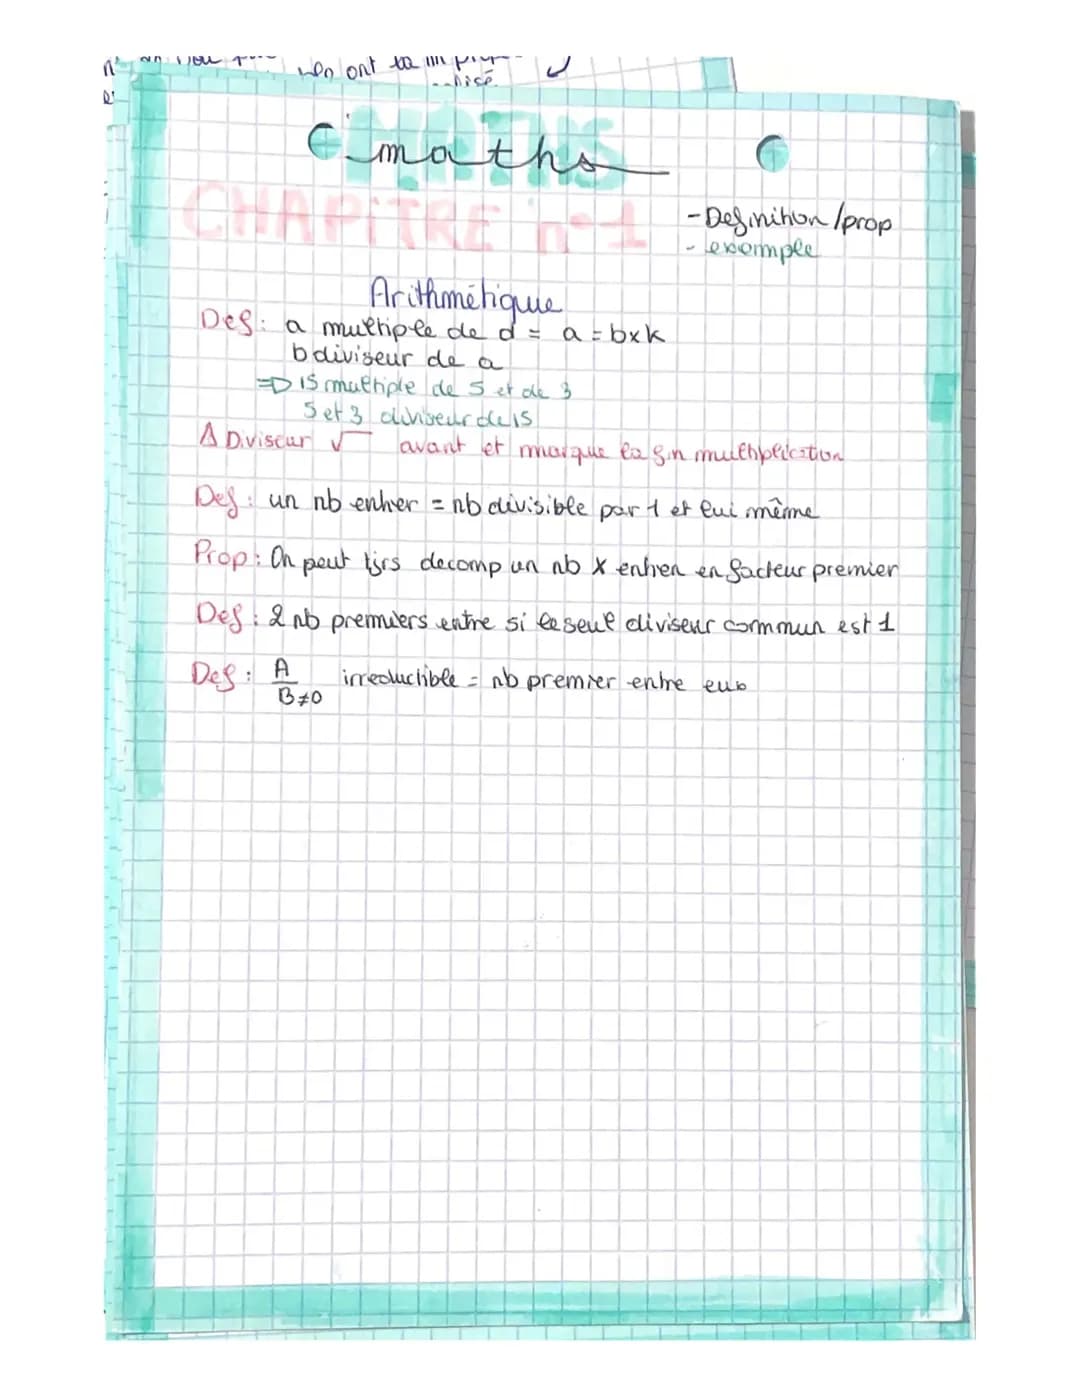 ont la
MATHS
maths
CHAPiTRE n°1
- Definition / prop
- exemple
Arithmétique
Def: a multiple de d = a = b×k
b diviseur de a
=> 15 multiple de 5 et de 3
5 et 3 diviseur de 15
Δ Diviseur √ avant et marque la fin multiplication
Def: un nb entier = nb divisible par 1 et lui même
Prop: On peut tjrs decomp un nb x entier en facteur premier
Def: 2 nb premiers entre si le seul diviseur commun est 1
Def: A irreductible = nb premier entre eux
B≠0